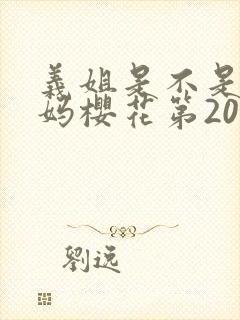 義姐是不是
妈櫻花第20
劉远